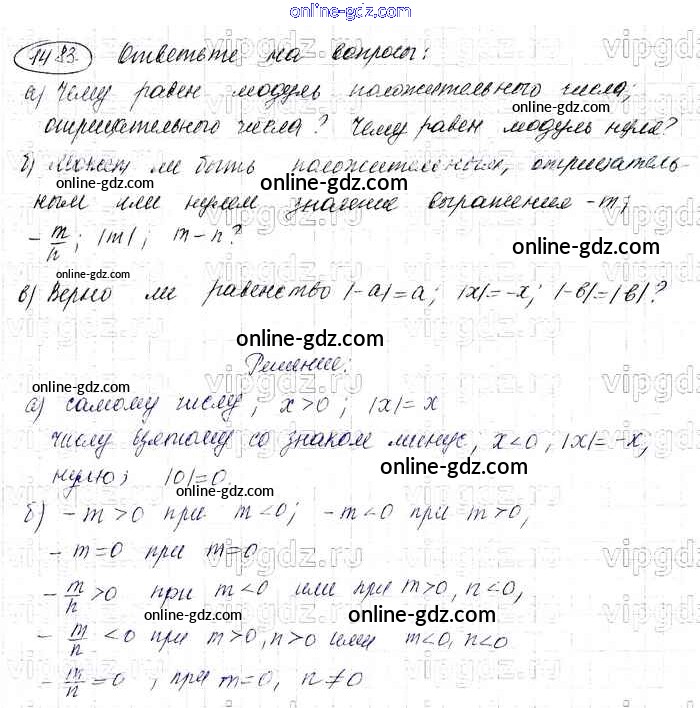 online-gdz.com
1483. Ответьте на вопросы:
а) Чему равен модуль положительного числа;
online-gdz.com
отрицательного числа? Чему равен модуль нуля?
online-gdz.com
б) Может ли быть положительным, отрицатель-
online-gdz.com
ным или нулем значение выражения -m;
-m/n; |m|; m-n?
online-gdz.com
online-gdz.com
в) Верно ли равенство |-a|=a; |x|=-x; |-b|=|b|?
online-gdz.com
online-gdz.com
Решение:
online-gdz.com
а) самому числу, x>0; |x|=x
числу взятому со знаком минус, x<0, |x|=-x,
online-gdz.com
нулю; |0|=0.
online-gdz.com
б) -m>0 при m<0; -m<0 при m>0,
-m=0 при m=0
-m/n>0 при m<0 или при m>0, n<0,
online-gdz.com
online-gdz.com
-m/n<0 при m>0, n>0 или m<0, n<0
-m/n=0, при m=0, n≠0
online-gdz.com